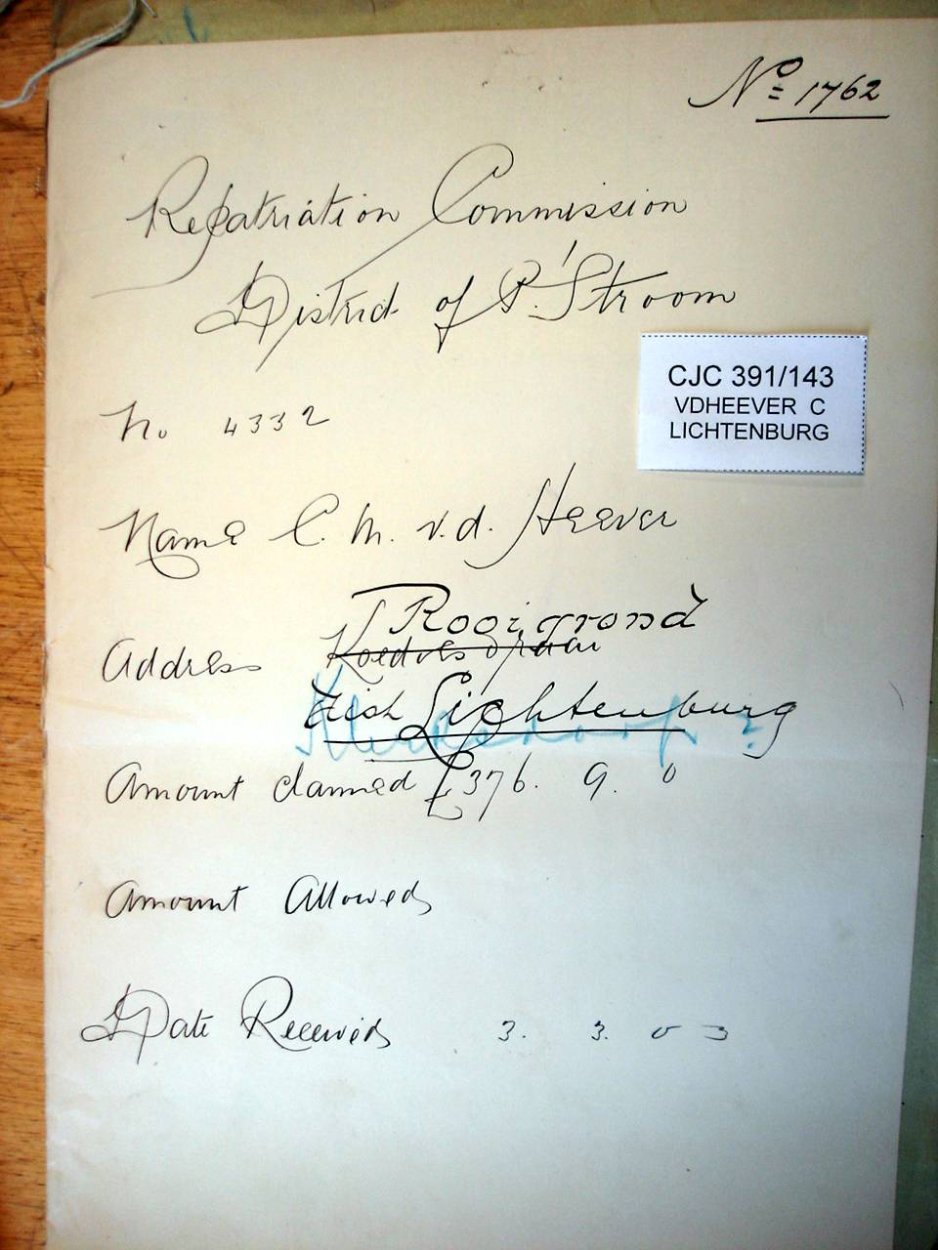 No 1762
Repatriation Commission
District of P.'Stroom
CJC 391/143
VDHEEVER C
LICHTENBURG
No 4332
Name C. M. v. d. Heever
Rooigrond
Address
Dist Lichtenburg
Klerksdorp?
Amount claimed £376. 9. 0
Amount Allowed
Date Received 3. 3. 03